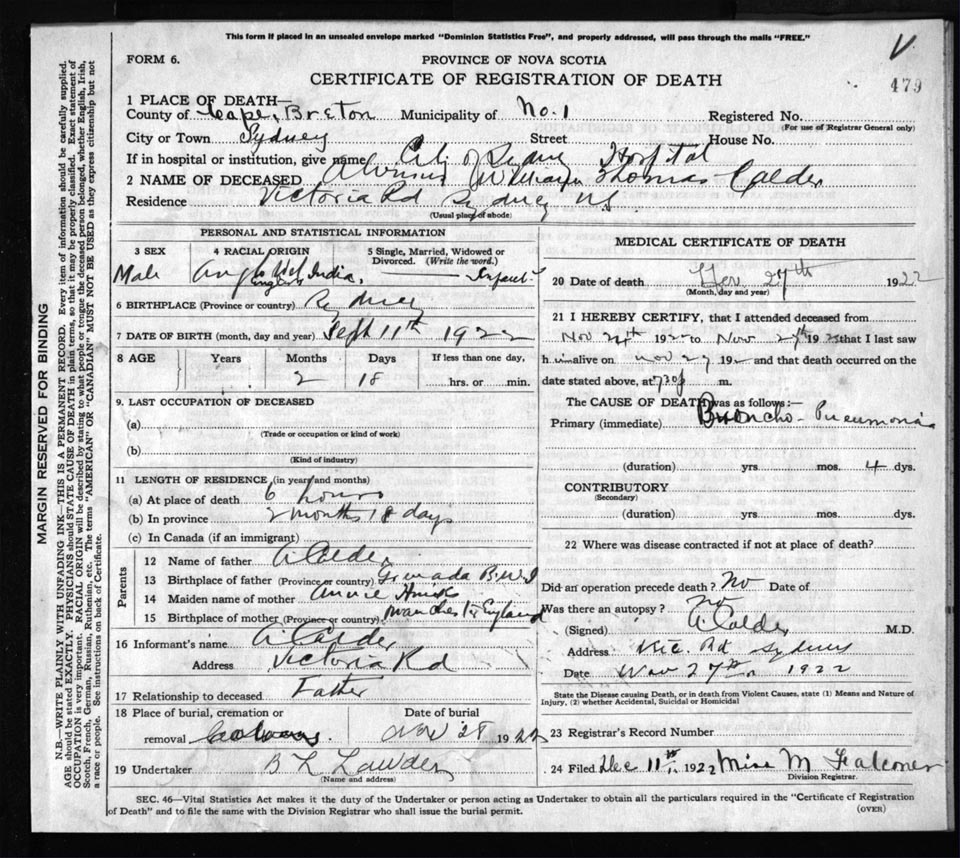 This form if placed in an unsealed envelope marked "Dominion Statistics Free", and properly addressed, will pass through the mails "FREE."
V
FORM 6.
PROVINCE OF NOVA SCOTIA
479
CERTIFICATE OF REGISTRATION OF DEATH
1 PLACE OF DEATH—
County of Cape Breton Municipality of No. 1 Registered No.
(For use of Registrar General only)
City or Town Sydney Street House No.
If in hospital or institution, give name City of Sydney Hospital
2 NAME OF DECEASED William Thomas Calder
Residence Victoria Rd Sydney NS
(Usual place of abode)
PERSONAL AND STATISTICAL INFORMATION
3 SEX 4 RACIAL ORIGIN 5 Single, Married, Widowed or Divorced. (Write the word.)
Male English Infant
6 BIRTHPLACE (Province or country) Sydney
7 DATE OF BIRTH (month, day and year) Sept 11th 1922
8 AGE Years Months Days If less than one day,
2 18 hrs. or min.
9. LAST OCCUPATION OF DECEASED
(a)
(Trade or occupation or kind of work)
(b)
(Kind of industry)
11 LENGTH OF RESIDENCE (in years and months)
(a) At place of death 6 hours
(b) In province 2 months 18 days
(c) In Canada (if an immigrant)
Parents
12 Name of father A Calder
13 Birthplace of father (Province or country) Grenada B.W.I
14 Maiden name of mother Annie
15 Birthplace of mother (Province or country) Manchester England
16 Informant's name A Calder
Address Victoria Rd
17 Relationship to deceased Father
18 Place of burial, cremation or removal Date of burial
Nov 28 1922
19 Undertaker B L Lawder
(Name and address)
MEDICAL CERTIFICATE OF DEATH
20 Date of death Nov. 27th 1922
(Month, day and year)
21 I HEREBY CERTIFY, that I attended deceased from
Nov 24th 1922 to Nov 27th 1922 that I last saw
him alive on Nov 27 192 and that death occurred on
date stated above, at 730 p m.
The CAUSE OF DEATH was as follows:—
Primary (immediate) Broncho-Pneumonia
(duration) yrs. mos. 4 dys.
CONTRIBUTORY
(Secondary)
(duration) yrs. mos. dys.
22 Where was disease contracted if not at place of death?
Did an operation precede death? No Date of
Was there an autopsy? No
(Signed) A Calder M.D.
Address Vic. Rd Sydney
Date Nov 27th 1922
State the Disease causing Death, or in death from Violent Causes, state (1) Means and Nature of
Injury, (2) whether Accidental, Suicidal or Homicidal
23 Registrar's Record Number
24 Filed Dec 11th 1922 Miss M Falconer
Division Registrar.
SEC. 46—Vital Statistics Act makes it the duty of the Undertaker or person acting as Undertaker to obtain all the particulars required in the "Certificate of Registration
of Death" and to file the same with the Division Registrar who shall issue the burial permit.
(OVER)
MARGIN RESERVED FOR BINDING
N.B.—WRITE PLAINLY WITH UNFADING INK—THIS IS A PERMANENT RECORD. Every item of information should be carefully supplied.
AGE should be stated EXACTLY. PHYSICIANS should STATE CAUSE OF DEATH in plain terms, so that it may be properly classified. Exact statement of
OCCUPATION is very important. RACIAL ORIGIN will be described by stating to what people or tongue the deceased person belonged, whether English, Irish,
Scotch, French, German, Russian, Ruthenian, etc. The terms "AMERICAN" or "CANADIAN" MUST NOT BE USED as they express citizenship but not
a race or people. See instructions on back of Certificate.